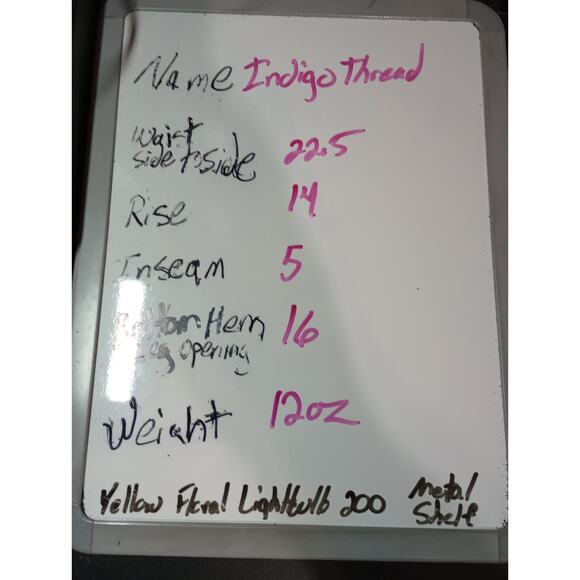 Name Indigo Thread
Waist
side to side 22.5
Rise 14
Inseam 5
Bottom Hem 16
Leg opening
Weight 12oz
Yellow Floral Lightbulb 200 Metal
Shelf